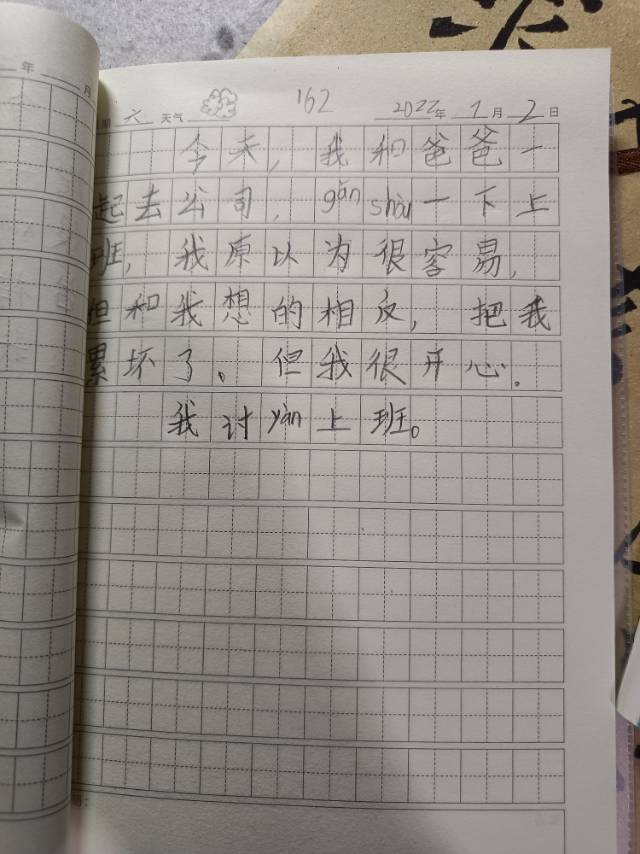 年 月
期 六 天气 162 2022年 1月 2日
今天，我和爸爸一
起去公司，gǎn shòu一下上
班，我原以为很容易，
但和我想的相反，把我
累坏了。但我很开心.
我讨yàn上班。